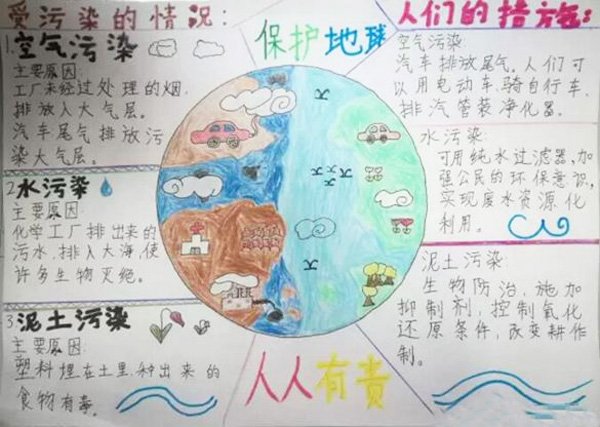 受污染的情况:
1.空气污染
主要原因:
工厂未经过处理的烟
排放入大气层。
汽车尾气排放污
染大气层。
2水污染
主要原因
化学工厂排出来的
污水,排入大海,使
许多生物灭绝。
3泥土污染
主要原因:
塑料埋在土里,种出来的
食物有毒。
保护地球
人人有责
人们的措施:
空气污染
汽车排放尾气。人们可
以用电动车,骑自行车,
排汽管装净化器。
水污染:
可用纯水过滤器,加
强公民的环保意识,
实现废水资源化
利用。
泥土污染:
生物防治,施加
抑制剂,控制氧化
还原条件,改变耕作
制。